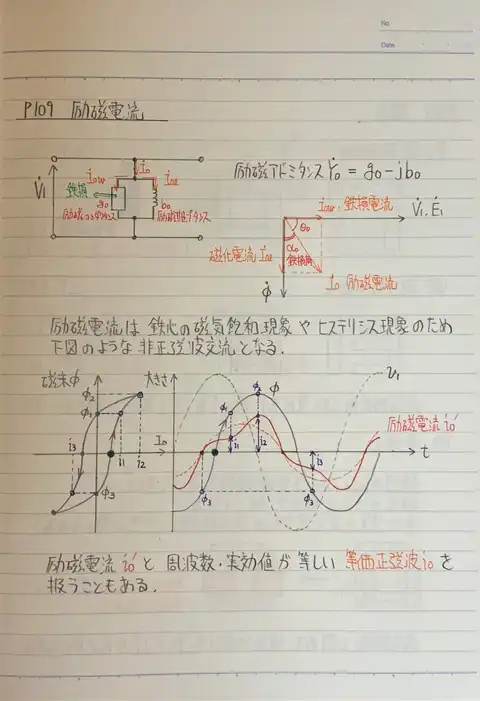 No.
Date
P109 励磁電流
V̇₁
İ₀
İ₀w
İ₀ℓ
鉄損
g₀
励磁コンダクタンス
b₀
励磁アドミタンス Ẏ₀ = g₀ - jb₀
İ₀w 鉄損電流
V̇₁, Ė₁
θ₀
α₀
鉄損角
磁化電流 İ₀ℓ
İ₀ 励磁電流
φ̇
励磁電流は 鉄心の磁気飽和現象や ヒステリシス現象のため
下図のような 非正弦波交流となる.
磁束φ
φ₂
φ₁
φ₃
i₃
i₁
i₂
I₀
大きさ
φ₁
φ₂
φ
v₁
励磁電流 i₀′
i₁
i₂
i₃
t
φ₃
φ₃
励磁電流 i₀′と 周波数・実効値が等しい 等価正弦波 i₀ を
扱うこともある.